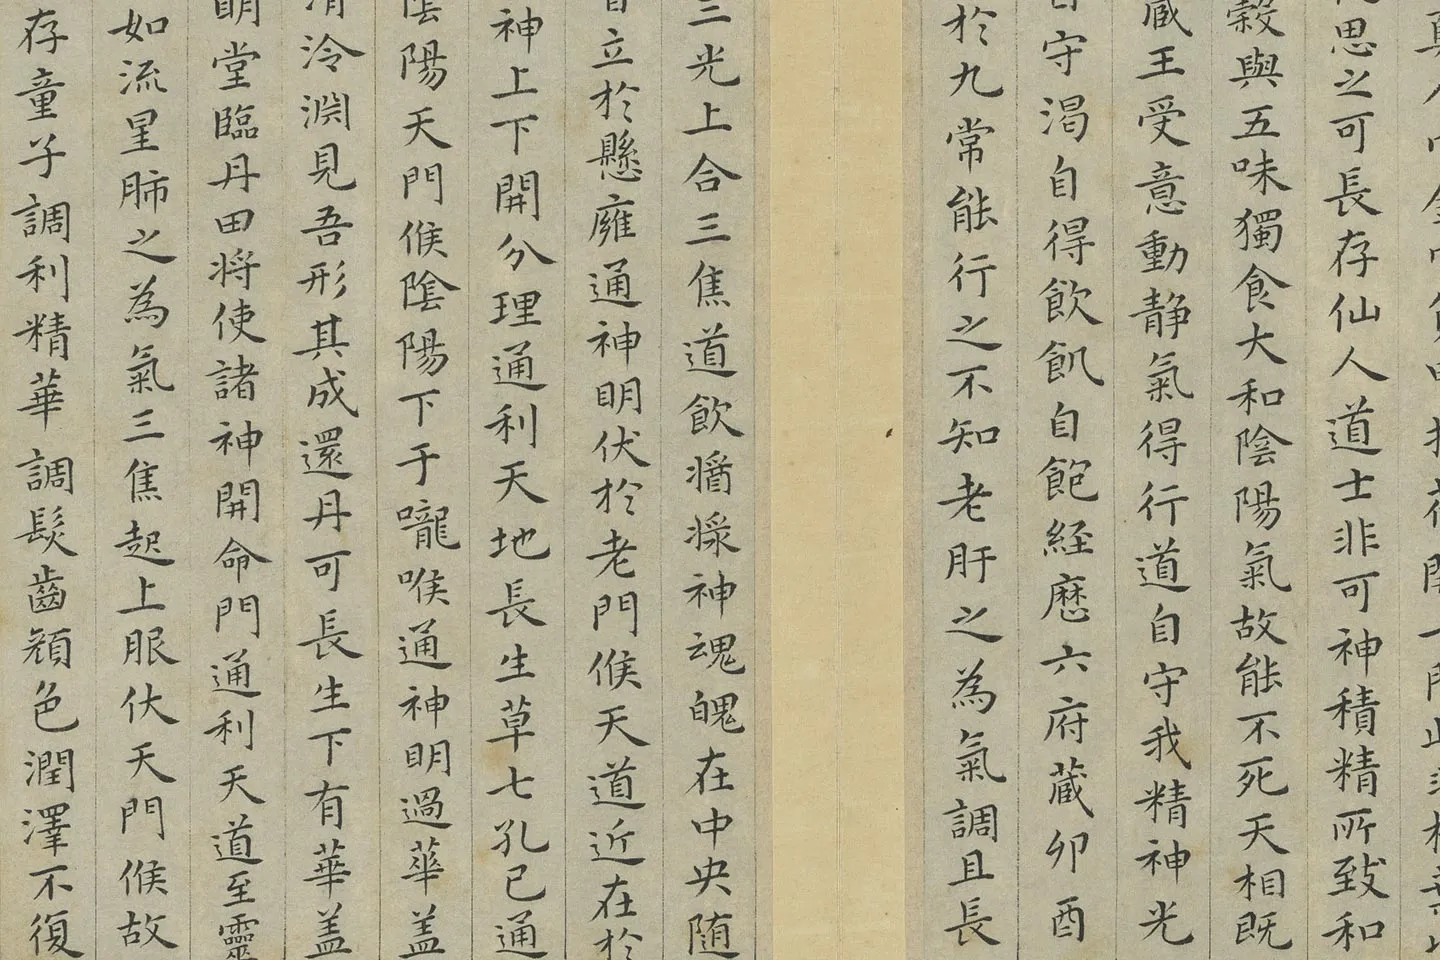 思之可長存仙人道士非可神積精所致和
穀與五味獨食大和陰陽氣故能不死天相既
藏王受意動静氣得行道自守我精神光
守渇自得飲飢自飽経歴六府藏卯酉
於九常能行之不知老肝之為氣調且長
三光上合三焦道飲醤漿神魂魄在中央随
立於懸癰通神明伏於老門候天道近在於
神上下開分理通利天地長生草七孔已通
陰陽天門候陰陽下于嚨喉通神明過華盖
清泠淵見吾形其成還丹可長生下有華盖
明堂臨丹田将使諸神開命門通利天道至靈
如流星肺之為氣三焦起上服伏天門候故
存童子調利精華調髮齒顔色潤澤不復